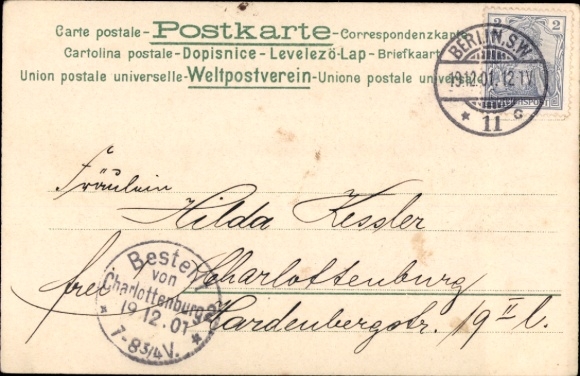 Carte postale - Postkarte - Correspondenzkarte
Cartolina postale - Dopisnice - Levelezö-Lap - Briefkaart
Union postale universelle - Weltpostverein - Unione postale universale
2 2
REICHSPOST
BERLIN S.W.
19.12.01. 12-1V.
* 11 c
Fräulein
Hilda Kessler
frei Charlottenburg
Hardenbergstr. 19 II l.
Bestellt
von
Charlottenburg 2
19.12.01
* 7-8¾V. *